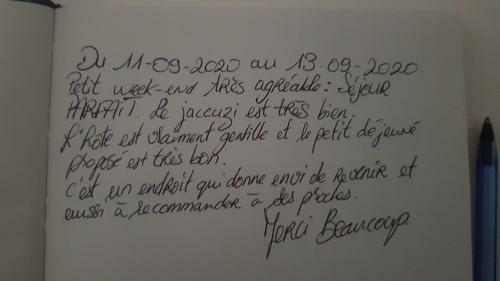 Du 11-09-2020 au 13-09-2020
Petit week-end très agréable : Séjour
PARFAIT. Le jaccuzi est très bien.
L'hôte est vraiment gentille et le petit déjeuné
proposé est très bon.
C'est un endroit qui donne envi de revenir et
aussi à recommander à des proches.
Merci Beaucoup.